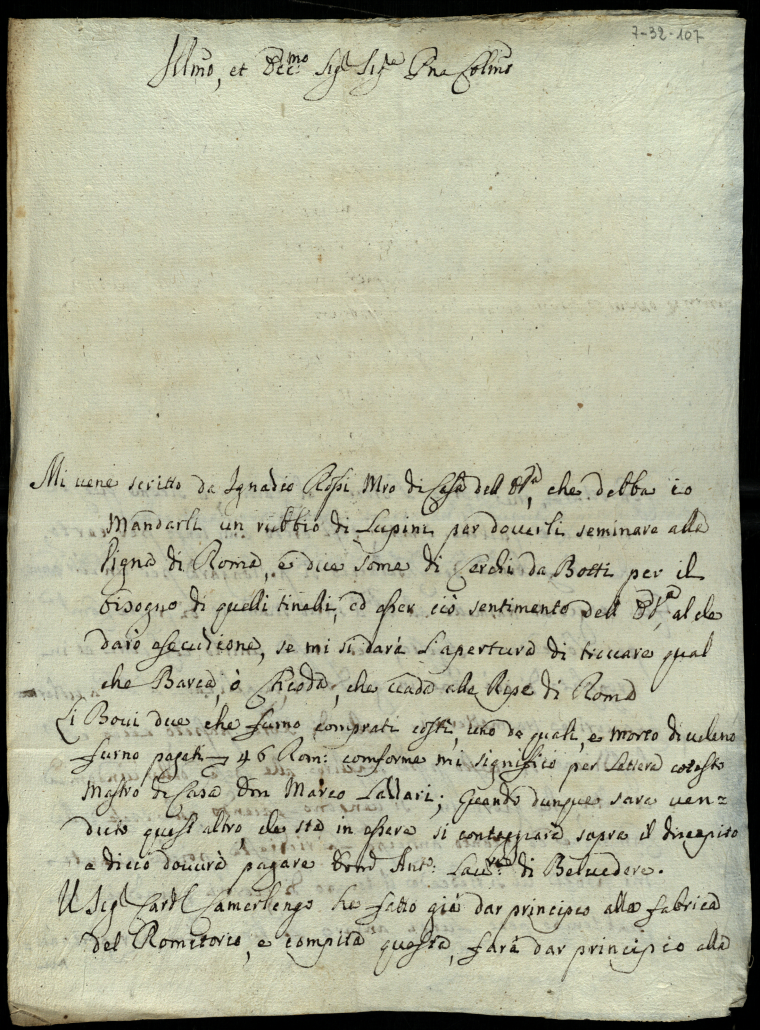 7-32-107
Illmo, et Eccmo Sigr Sigre Pne Colmo
Mi viene scritto da Ignazio Rossi Mro di Casa dell' EV, che debba io
mandarli un rubbio di Lupini per doverli seminare alla
Vigna di Roma, e due some di Cerchi da Botti per il
bisogno di quelli tinelli, ed esser ciò sentimento dell' EV, al che
darò esecuzione, se mi si darà l'apertura di trovare qual
che Barca, ò, che vada alle Ripe di Roma
Li Bovi due che furno comprati costì, uno de quali, e morto di veleno
furno pagati 46 Rom: conforme mi significò per lettera cotesto
Mastro di Casa Don Marco Lazzari; Quando dunque sara ven=
duto quest'altro, che stà in essere si conteggiarà sopra il discapito
a di ciò dovrà pagare Antº: di Belvedere.
Il Sigr Cardl Camerlengo hà fatto già dar principio alla fabrica
del Romitorio, e compita questa, farà dar principio alla